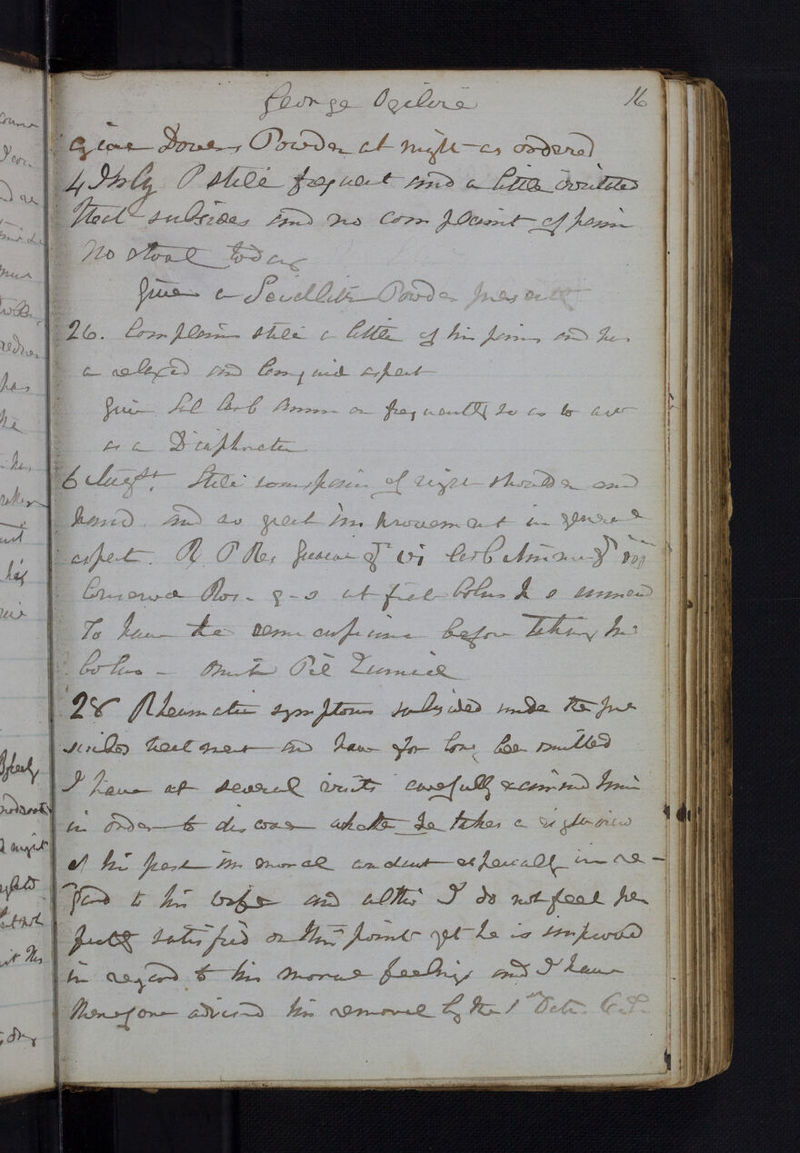 George Ogilvie 16
give Dovers Powder at night as ordered
4 July P still frequent and a little irritated
Heat subsides and no complaint of pain
No stool today
Give a Seidlitz Powder presently
26. Complains still a little of his pains and has
a relaxed and languid aspect
Give Sal Carb Ammon frequently so as to act
as a Diaphoretic
6 Augst. Still some pain of right shoulder and
hand and no great improvement in general
aspect. R P Res Guaiac gr vi Carb Ammon gr
Conserv Ros. q-s ut fiat bolus
To have the same before taking the
bolus - Omit Pil
28 Rheumatic symptoms subsided under the pre
scribed treatment and have for long been omitted
I have at several visits carefully examined him
in order to discover whether he takes a right view
of his past immoral conduct especially in re-
gard to his wife and altho I do not feel per
fectly satisfied on this point yet he is improved
in regard to his moral feelings and I have
therefore advised his removal by the 1st Octr.